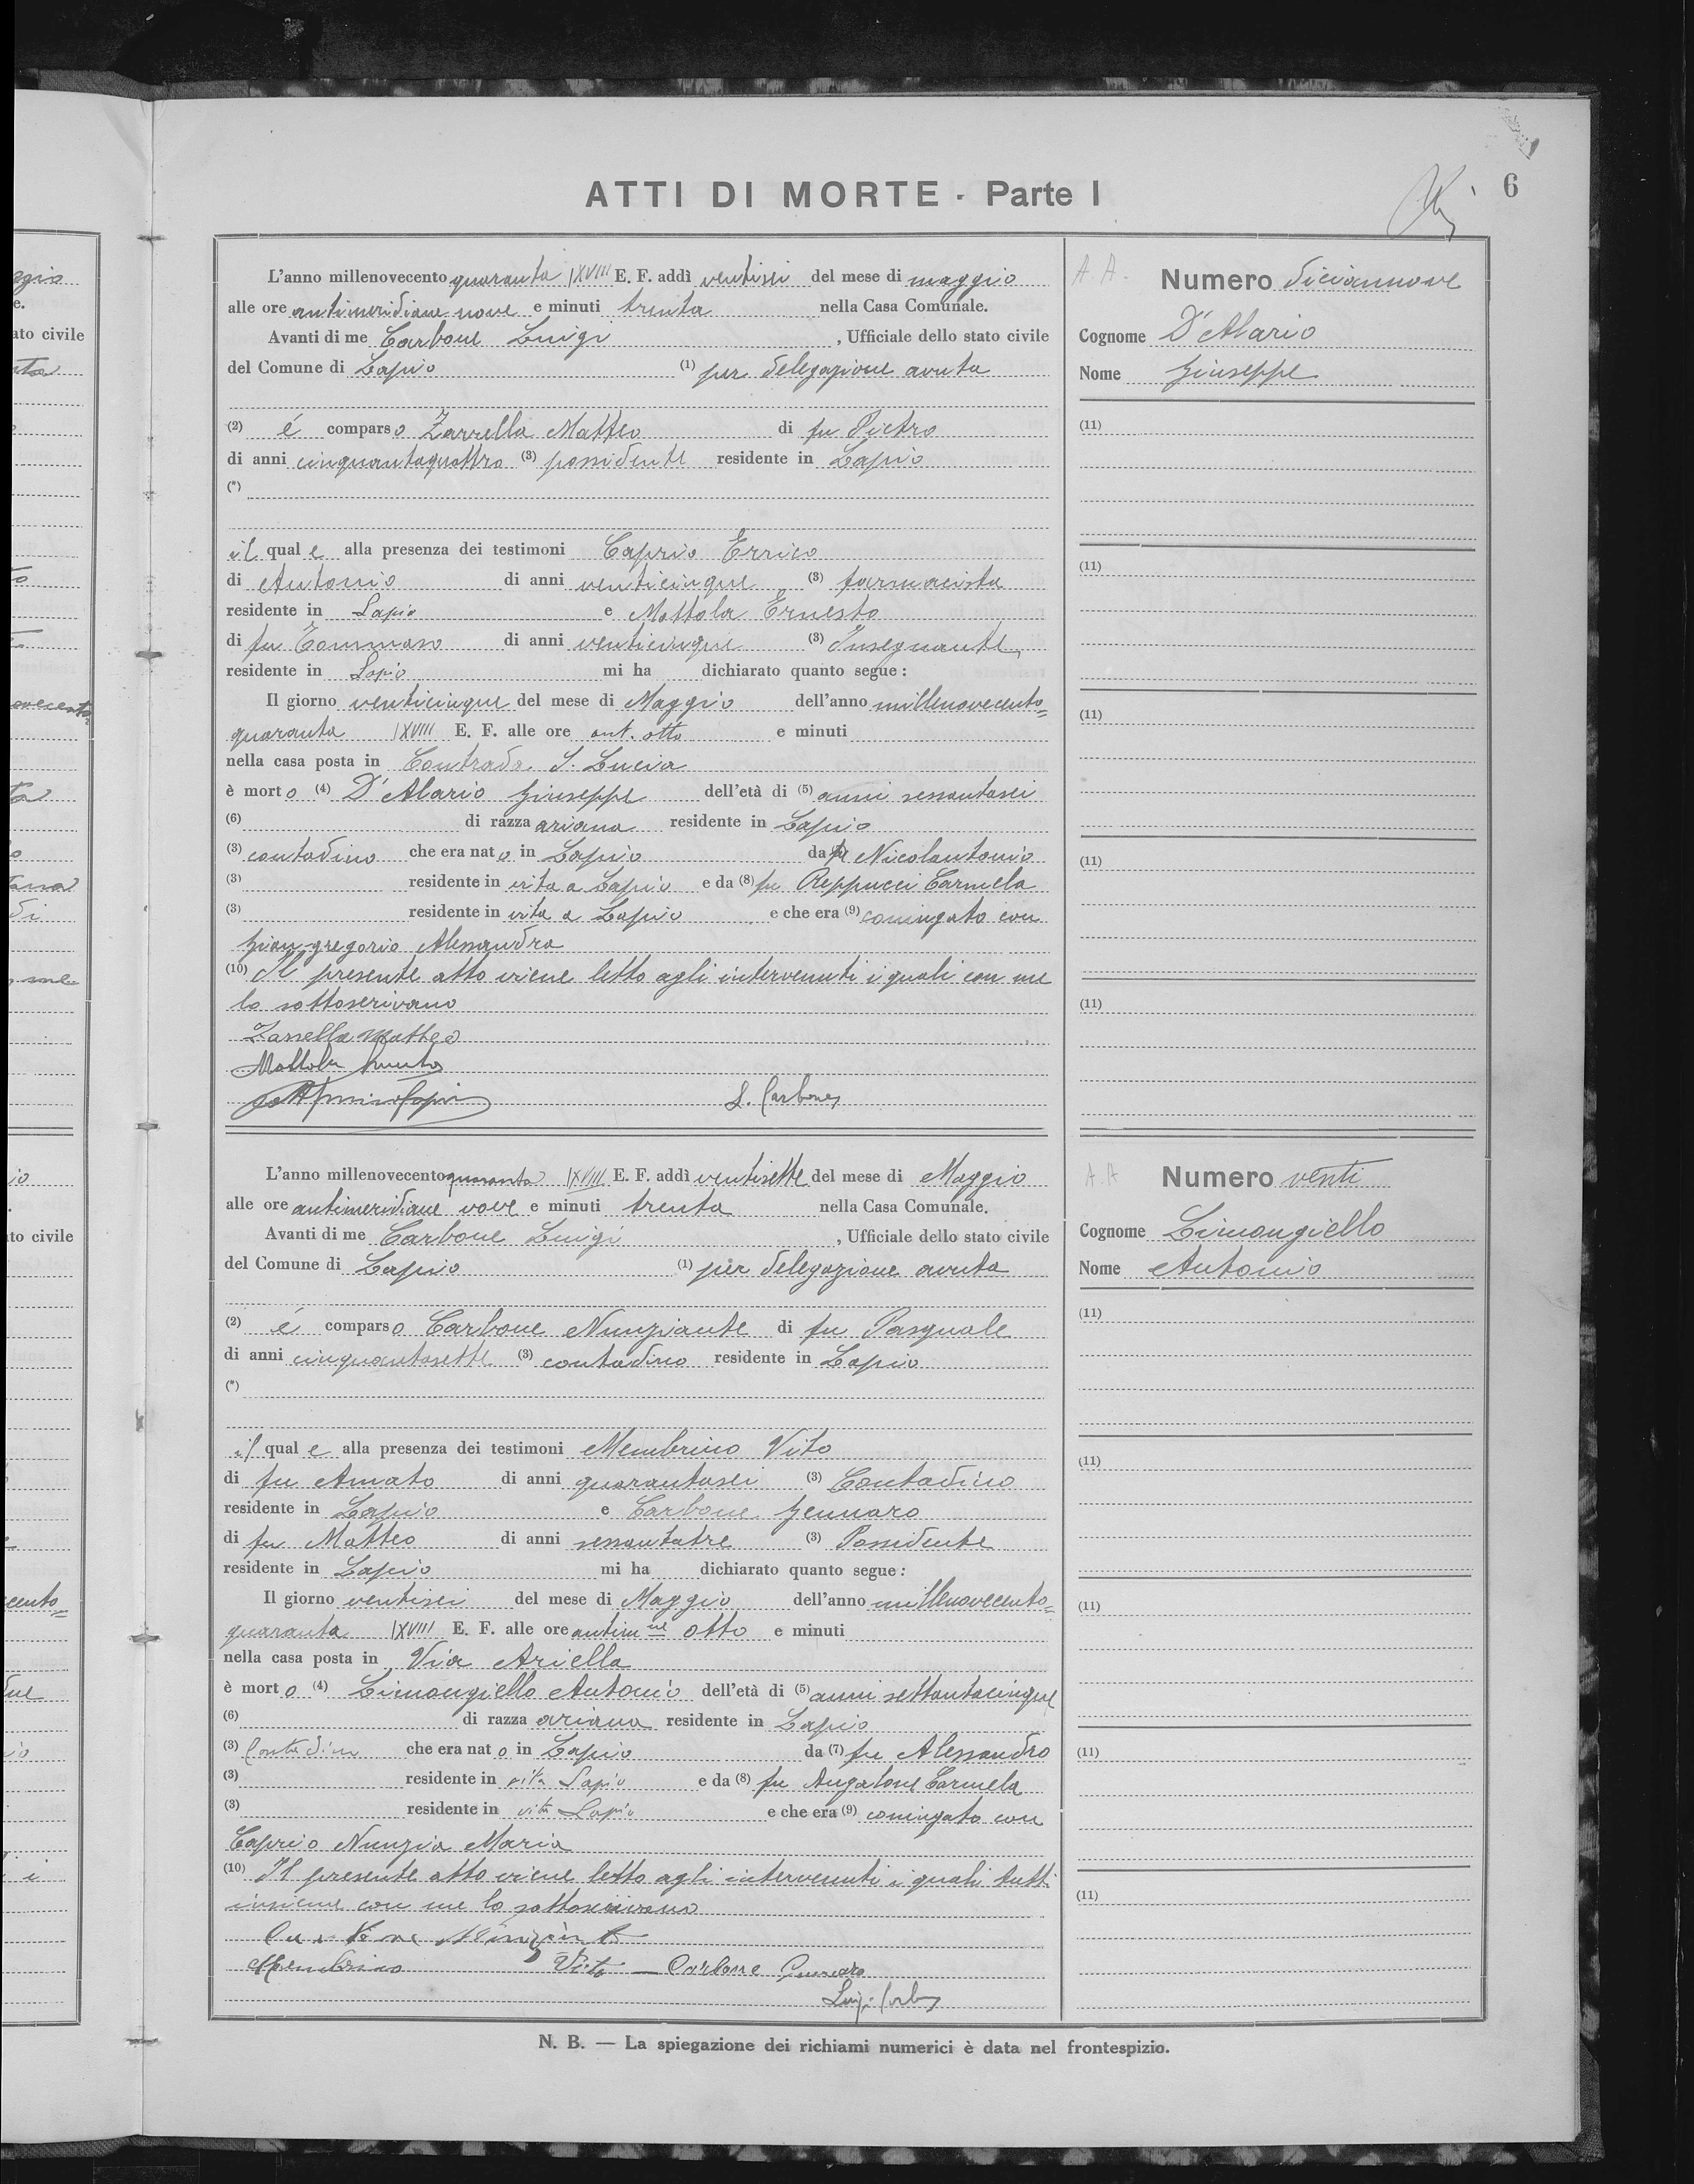 6
ATTI DI MORTE - Parte I
L'anno millenovecento quaranta /XVIII E. F. addì ventisei del mese di maggio
alle ore antimeridiane nove e minuti trenta nella Casa Comunale.
Avanti di me Carbone Luigi, Ufficiale dello stato civile
del Comune di Lapio (1) per delegazione avuta
(2) é comparso Zarrella Matteo di fu Pietro
di anni cinquantaquattro (3) possidente residente in Lapio
(*)
il quale alla presenza dei testimoni Caprio Errico
di Antonio di anni venticinque (3) farmacista
residente in Lapio e Mottola Ernesto
di fu Tommaso di anni venticinque (3) Insegnante,
residente in Lapio mi ha dichiarato quanto segue:
Il giorno venticinque del mese di Maggio dell'anno millenovecento=
quaranta /XVIII E. F. alle ore ant. otto e minuti
nella casa posta in Contrada S. Lucia
è morto (4) D'Alario Giuseppe dell'età di (5) anni sessantasei
(6) di razza ariana residente in Lapio
(3) contadino che era nato in Lapio da fu Nicolantonio
(3) residente in vita a Lapio e da (8) fu Reppucci Carmela
(3) residente in vita a Lapio e che era (9) coniugato con
Giangregorio Alessandra
(10) Il presente atto viene letto agli intervenuti i quali con me
lo sottoscrivono
Zarrella Matteo
Mottola Ernesto
L. Carbone
A. A.
Numero diciannove
Cognome D'Alario
Nome Giuseppe
(11)
(11)
(11)
(11)
(11)
L'anno millenovecento quaranta /XVIII E. F. addì ventisette del mese di Maggio
alle ore antimeridiane nove e minuti trenta nella Casa Comunale.
Avanti di me Carbone Luigi, Ufficiale dello stato civile
del Comune di Lapio (1) per delegazione avuta
(2) é comparso Carbone Nunziante di fu Pasquale
di anni cinquantasette (3) contadino residente in Lapio
(*)
il quale alla presenza dei testimoni Membrino Vito
di fu Amato di anni quarantasei (3) Contadino
residente in Lapio e Carbone Gennaro
di fu Matteo di anni sessantatre (3) Possidente
residente in Lapio mi ha dichiarato quanto segue:
Il giorno ventisei del mese di Maggio dell'anno millenovecento=
quaranta /XVIII E. F. alle ore antim.ne otto e minuti
nella casa posta in Via Ariella
è morto (4) Limongiello Antonio dell'età di (5) anni settantacinque
(6) di razza ariana residente in Lapio
(3) Contadino che era nato in Lapio da (7) fu Alessandro
(3) residente in vita Lapio e da (8) fu Angalone Carmela
(3) residente in vita Lapio e che era (9) coniugato con
Caprio Nunzia Maria
(10) Il presente atto viene letto agli intervenuti i quali tutti
insieme con me lo sottoscrivono
Carbone Nunziante
Membrino Vito — Carbone Gennaro
Luigi Carbone
A. A
Numero venti
Cognome Limongiello
Nome Antonio
(11)
(11)
(11)
(11)
(11)
N. B. — La spiegazione dei richiami numerici è data nel frontespizio.